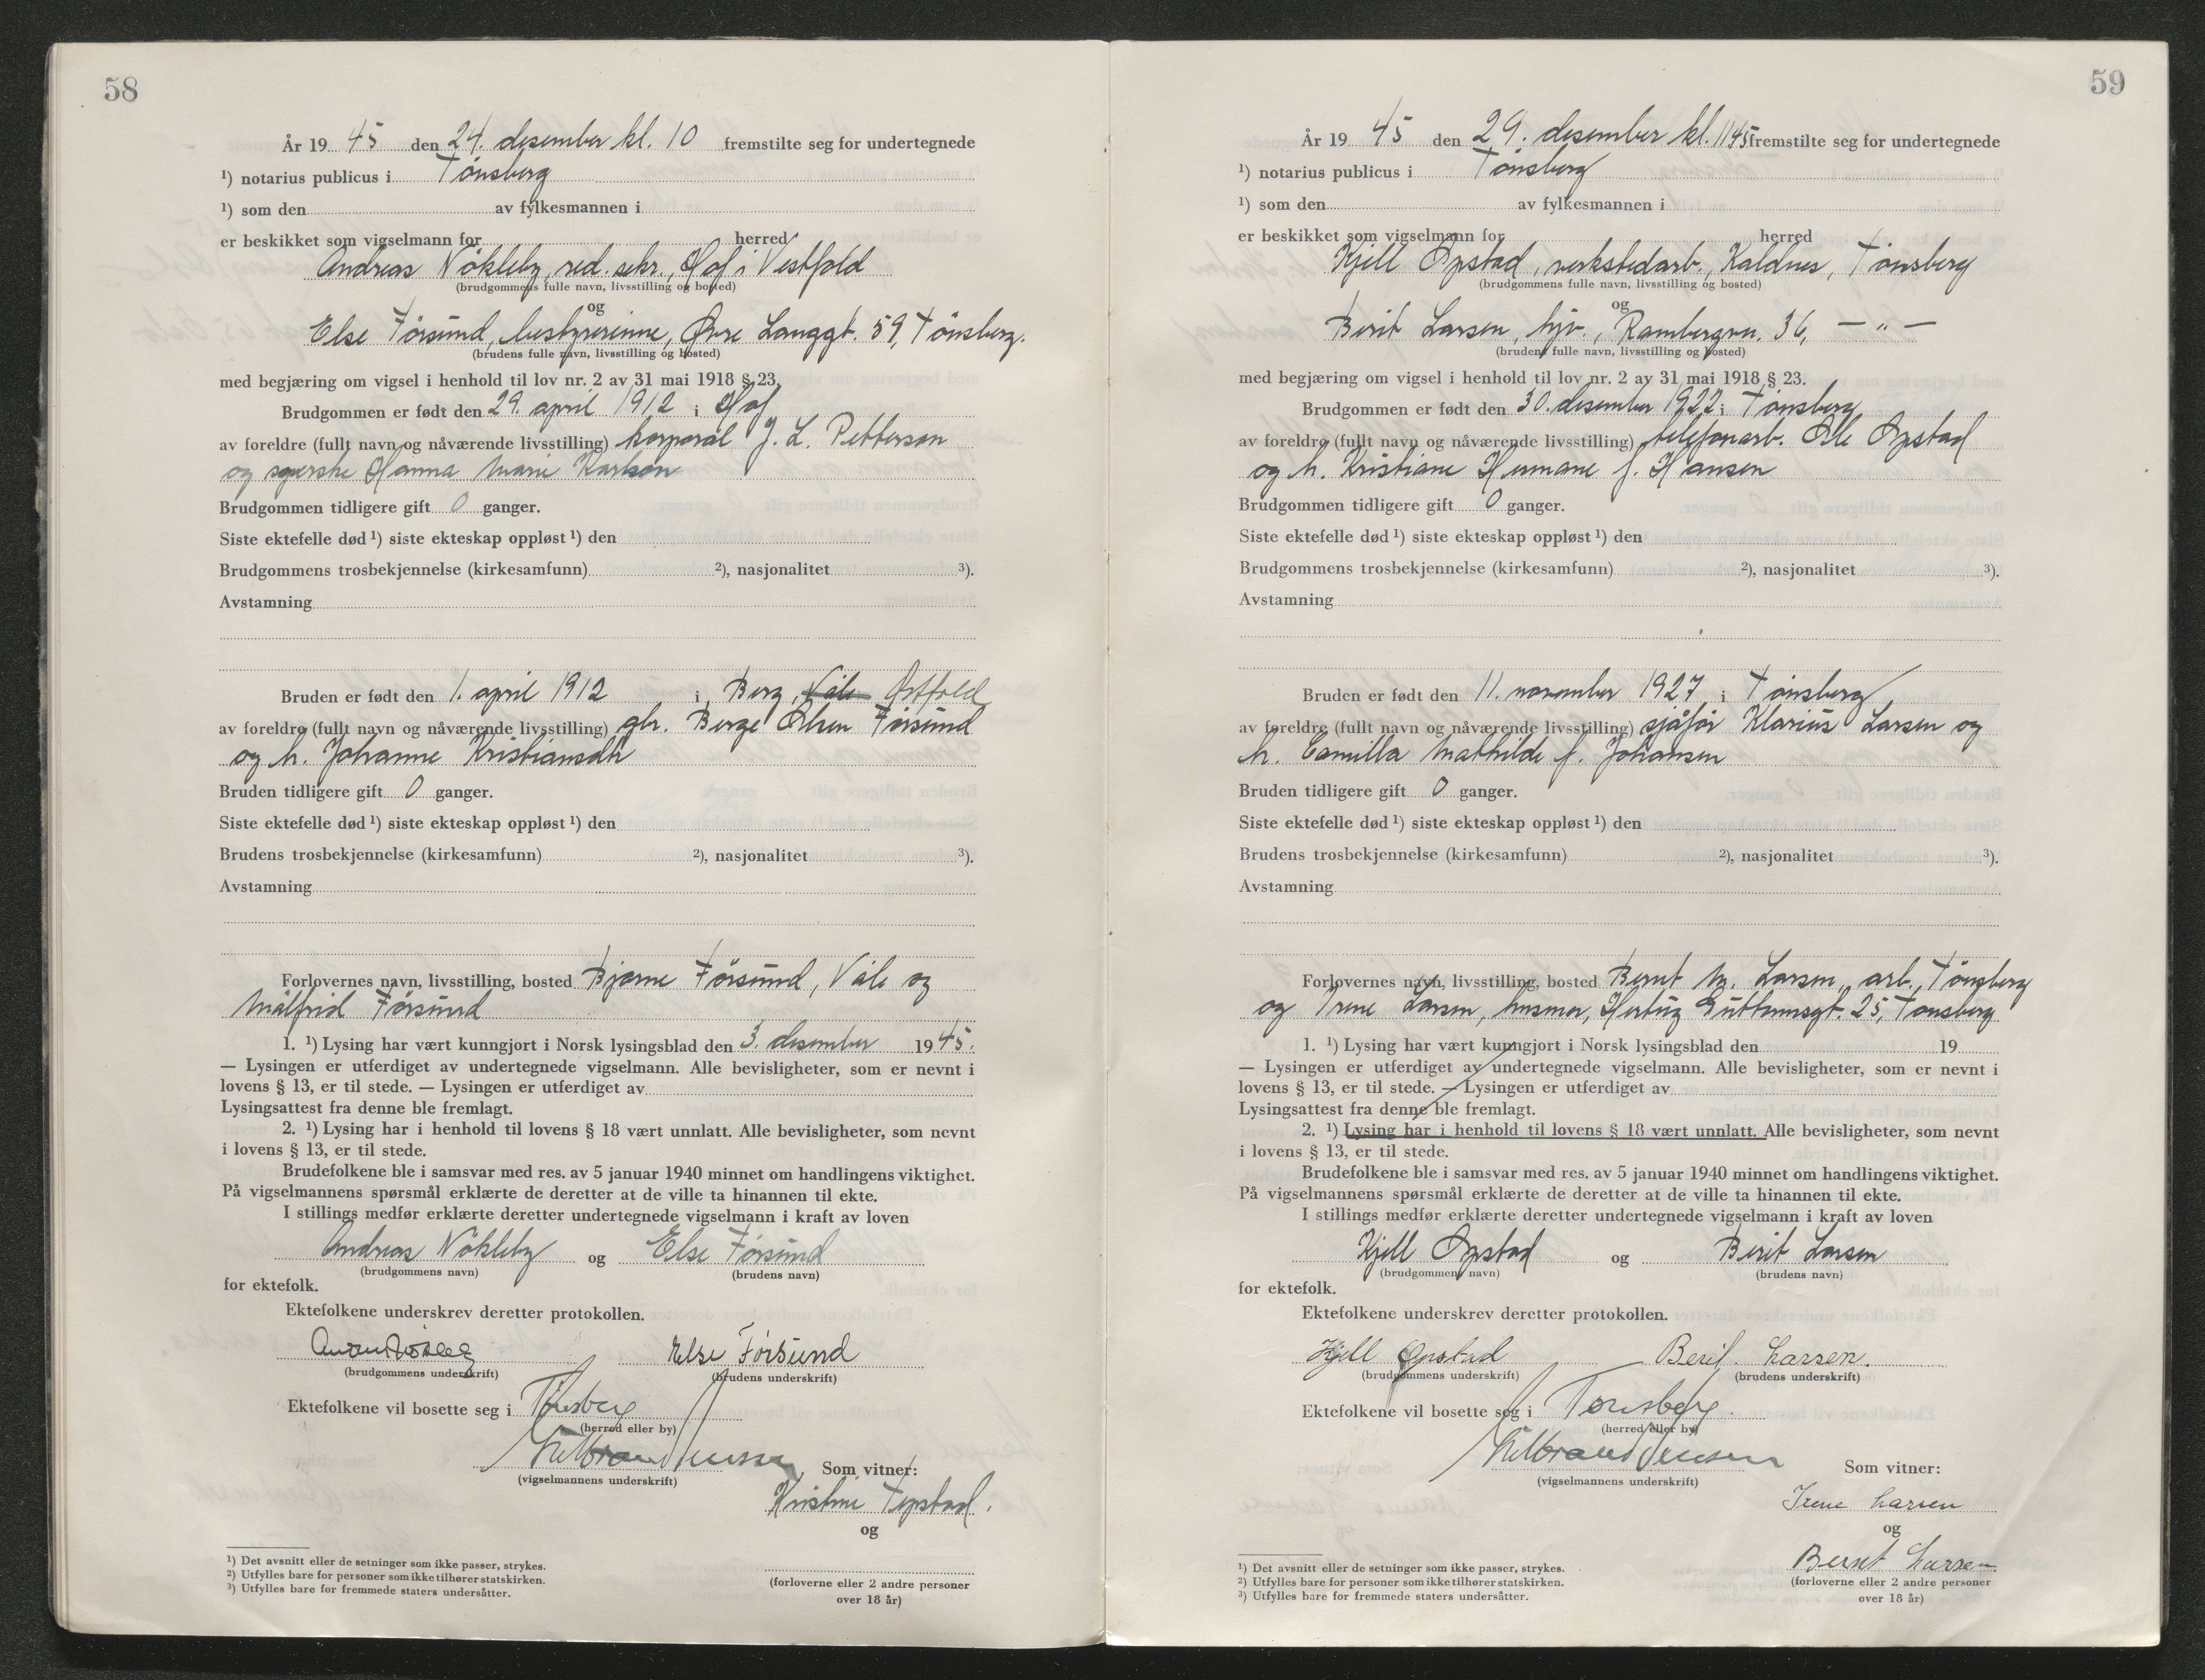 58
År 19 45 den 24. desember kl. 10 fremstilte seg for undertegnede
¹) notarius publicus i Tönsberg
¹) som den av fylkesmannen i
er beskikket som vigselmann for herred
Andreas Nökleby, red. sekr., Hof i Vestfold
(brudgommens fulle navn, livsstilling og bosted)
og
Else Försund, bestyrerinne, Øvre Langgt. 59, Tönsberg.
(brudens fulle navn, livsstilling og bosted)
med begjæring om vigsel i henhold til lov nr. 2 av 31 mai 1918 § 23.
Brudgommen er født den 29. april 1912 i Hof
av foreldre (fullt navn og nåværende livsstilling) korporal J. L. Petterson
og syerske Hanna Marie Karlson
Brudgommen tidligere gift 0 ganger.
Siste ektefelle død ¹) siste ekteskap oppløst ¹) den
Brudgommens trosbekjennelse (kirkesamfunn) ²), nasjonalitet ³).
Avstamning
Bruden er født den 1. april 1912 i Berg, Våle Østfold
av foreldre (fullt navn og nåværende livsstilling) gbr. Berge Olsen Försund
og h. Johanne Kristiansdtr
Bruden tidligere gift 0 ganger.
Siste ektefelle død ¹) siste ekteskap oppløst ¹) den
Brudens trosbekjennelse (kirkesamfunn) ²), nasjonalitet ³).
Avstamning
Forlovernes navn, livsstilling, bosted Bjarne Försund, Våle og
Målfrid Försund
1. ¹) Lysing har vært kunngjort i Norsk lysingsblad den 3. desember 19 45.
— Lysingen er utferdiget av undertegnede vigselmann. Alle bevisligheter, som er nevnt i
lovens § 13, er til stede. — Lysingen er utferdiget av
Lysingsattest fra denne ble fremlagt.
2. ¹) Lysing har i henhold til lovens § 18 vært unnlatt. Alle bevisligheter, som nevnt
i lovens § 13, er til stede.
Brudefolkene ble i samsvar med res. av 5 januar 1940 minnet om handlingens viktighet.
På vigselmannens spørsmål erklærte de deretter at de ville ta hinannen til ekte.
I stillings medfør erklærte deretter undertegnede vigselmann i kraft av loven
Andreas Nökleby og Else Försund
(brudgommens navn) (brudens navn)
for ektefolk.
Ektefolkene underskrev deretter protokollen.
Else Försund
(brudgommens underskrift) (brudens underskrift)
Ektefolkene vil bosette seg i Tönsberg
(herred eller by)
(vigselmannens underskrift)
Som vitner:
Kristine Tepstad.
og
(forloverne eller 2 andre personer
over 18 år)
¹) Det avsnitt eller de setninger som ikke passer, strykes.
²) Utfylles bare for personer som ikke tilhører statskirken.
³) Utfylles bare for fremmede staters undersåtter.
59
År 19 45 den 29. desember kl. 1145 fremstilte seg for undertegnede
¹) notarius publicus i Tönsberg
¹) som den av fylkesmannen i
er beskikket som vigselmann for herred
Kjell Opstad, verkstedarb., Kaldnes, Tönsberg
(brudgommens fulle navn, livsstilling og bosted)
og
Berit Larsen, hjv., Rambergvn. 36, — „ —
(brudens fulle navn, livsstilling og bosted)
med begjæring om vigsel i henhold til lov nr. 2 av 31 mai 1918 § 23.
Brudgommen er født den 30. desember 1922 i Tönsberg
av foreldre (fullt navn og nåværende livsstilling) telefonarb. Ole Opstad
og h. Kristiane Hermane f. Hansen
Brudgommen tidligere gift 0 ganger.
Siste ektefelle død ¹) siste ekteskap oppløst ¹) den
Brudgommens trosbekjennelse (kirkesamfunn) ²), nasjonalitet ³).
Avstamning
Bruden er født den 11. november 1927 i Tönsberg
av foreldre (fullt navn og nåværende livsstilling) sjåför Klarius Larsen og
h. Camilla Mathilde f. Johansen
Bruden tidligere gift 0 ganger.
Siste ektefelle død ¹) siste ekteskap oppløst ¹) den
Brudens trosbekjennelse (kirkesamfunn) ²), nasjonalitet ³).
Avstamning
Forlovernes navn, livsstilling, bosted Bernt M. Larsen, arb., Tönsberg
og Irene Larsen, husmor, Hertug Guttormsgt. 25, Tönsberg
1. ¹) Lysing har vært kunngjort i Norsk lysingsblad den 19
— Lysingen er utferdiget av undertegnede vigselmann. Alle bevisligheter, som er nevnt i
lovens § 13, er til stede. — Lysingen er utferdiget av
Lysingsattest fra denne ble fremlagt.
2. ¹) Lysing har i henhold til lovens § 18 vært unnlatt. Alle bevisligheter, som nevnt
i lovens § 13, er til stede.
Brudefolkene ble i samsvar med res. av 5 januar 1940 minnet om handlingens viktighet.
På vigselmannens spørsmål erklærte de deretter at de ville ta hinannen til ekte.
I stillings medfør erklærte deretter undertegnede vigselmann i kraft av loven
Kjell Opstad og Berit Larsen
(brudgommens navn) (brudens navn)
for ektefolk.
Ektefolkene underskrev deretter protokollen.
Kjell Opstad Berit Larsen.
(brudgommens underskrift) (brudens underskrift)
Ektefolkene vil bosette seg i Tönsberg.
(herred eller by)
(vigselmannens underskrift)
Som vitner:
Irene Larsen
og
Bernt Larsen
(forloverne eller 2 andre personer
over 18 år)
¹) Det avsnitt eller de setninger som ikke passer, strykes.
²) Utfylles bare for personer som ikke tilhører statskirken.
³) Utfylles bare for fremmede staters undersåtter.